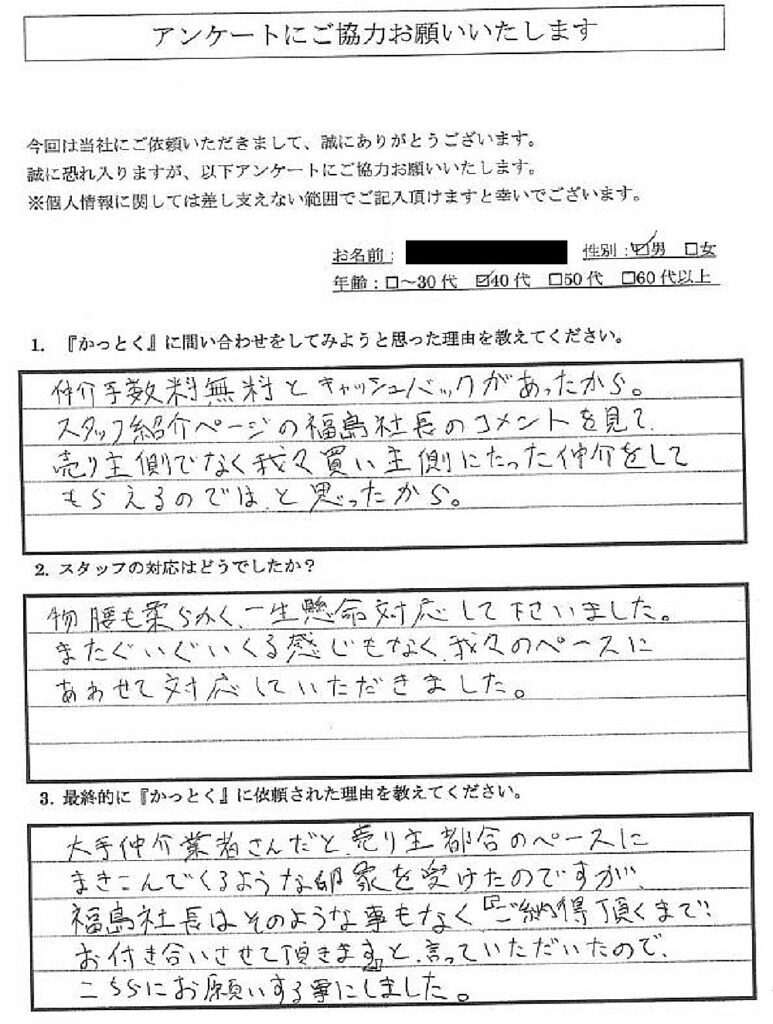 アンケートにご協力お願いいたします
今回は当社にご依頼いただきまして、誠にありがとうございます。
誠に恐れ入りますが、以下アンケートにご協力お願いいたします。
※個人情報に関しては差し支えない範囲でご記入頂けますと幸いでございます。
お名前: 性別:☑男 □女
年齢:□~30代 ☑40代 □50代 □60代以上
1. 『かっとく』に問い合わせをしてみようと思った理由を教えてください。
仲介手数料無料とキャッシュバックがあったから。
スタッフ紹介ページの福島社長のコメントを見て、
売り主側でなく我々買い主側にたった仲介をして
もらえるのでは、と思ったから。
2. スタッフの対応はどうでしたか?
物腰も柔らかく、一生懸命対応して下さいました。
またぐいぐいくる感じもなく、我々のペースに
あわせて対応していただきました。
3. 最終的に『かっとく』に依頼された理由を教えてください。
大手仲介業者さんだと、売り主都合のペースに
まきこんでくるような印象を受けたのですが、
福島社長はそのような事もなく『ご納得頂くまで
お付き合いさせて頂きます』と、言っていただいたので、
こちらにお願いする事にしました。